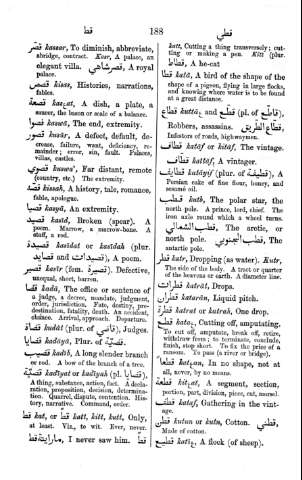 قط 188 قطي
قصر kasser, To diminish, abbreviate,
abridge, contract. Kasr, A palace, an
elegant villa. قصرشاهي A royal
palace.
قصص kisas, Histories, narrations,
fables.
قصعة A dish, a plate, a
saucer, the basin or scale of a balance.
قصوا kuswa, The end, extremity.
قصور kusūr, A defect, default, de-
crease, failure, want, deficiency, re-
mainder; error, sin, fault. Palaces,
villas, castles.
قصوي kuswa', Far distant, remote
(country, etc.) The extremity.
قصه kissah, A history, tale, romance,
fable, apologue.
قصيا kasyā, An extremity.
قصيد kasīd, Broken (spear). A
poem. Marrow, a marrow-bone. A
staff, a rod.
قصيدة kasīdat or kasīdah (plur.
قصايد and قصيدات), A poem.
قصير kasīr (fem. قصيرة). Defective,
unequal, short, barren.
قضا kadā, The office or sentence of
a judge, a decree, mandate, judgment,
order, jurisdiction. Fate, destiny, pre-
destination, fatality, death. An accident,
chance. Arrival, approach. Departure.
قضاة kudāt (plur. of قاضي), Judges.
قضايا kadāyā, Plur. of قضية.
قضيب kadīb, A long slender branch
or rod. A bow of the branch of a tree.
قضية kadīyat or kadīyah (pl. قضايا).
A thing, substance, action, fact. A decla-
ration, proposition, decision, determina-
tion. Quarrel, dispute, contention. His-
tory, narrative. Command, order.
قط kat, or قط katt, kitt, kutt, Only,
at least. Viz., to wit. Ever, never.
مارايته قط, I never saw him. قط
katt, Cutting a thing transversely; cut-
ting or making a pen. Kitt (plur.
قطاط), A he-cat
قطا katā, A bird of the shape of the
shape of a pigeon, flying in large flocks,
and knowing where water is to be found
at a great distance.
قطاع kuttā, and قطع (pl. of قاطع),
Robbers, assassins. قطاع الطريق
Infestors of roads, highwaymen.
قطاف katāf or kitāf, The vintage.
قطاف kattāf, A vintager.
قطايف katāyif (plur. of قطيفة), A
Persian cake of fine flour, honey, and
sesamë oil.
قطب kutb, The polar star, the
north pole. A prince, lord, chief. The
iron axle round which a wheel turns.
قطب الشمالي, The arctic, or
north pole. قطب الجنوبي, The
antarctic pole.
قطر katr, Dropping (as water). Kutr,
The side of the body. A tract or quarter
of the heavens or earth. A diameter line.
قطرات katrāt, Drops.
قطران katarān, Liquid pitch.
قطرة katrat or kutrah, One drop.
قطع Cutting off, amputating,
To cut off, amputate, break off, retire,
withdraw from; to terminate, conclude,
finish, stop short. To fix the price of a
ransom. To pass (a river or bridge).
قطعا In no shape, not at
all, never, by no means.
قطعة A segment, section,
portion, part, division, piece, cut, morsel.
قطف kataf, Gathering in the vint-
age.
قطن kutun or kutn, Cotton. قطني,
Made of cotton.
قطيع A flock (of sheep).